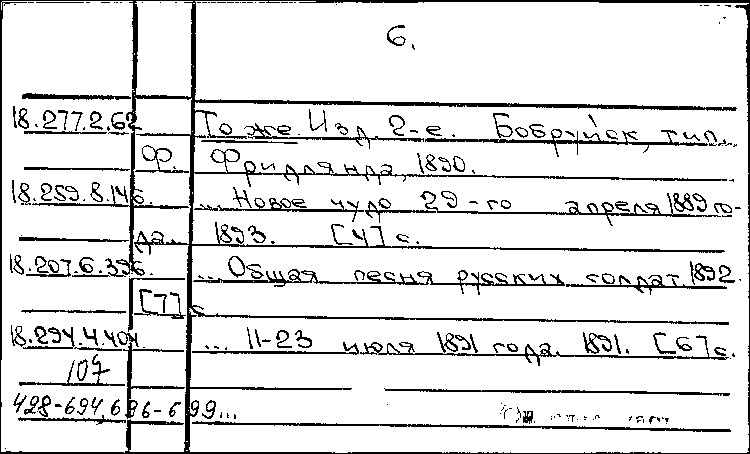 6.
18.277.2.62 То же. Изд. 2-е. Бобруйск, тип.
Ф. Фридлянда, 1890.
18.259.8.146. ... Новое чудо 29-го апреля 1889 го-
да. 1893. [4] с.
18.207.6.396. ... Общая песня русских солдат. 1892.
[7] с
18.294.4.404. ... 11-23 июля 1891 года. 1891. [6] с.
107
428-694, 696-699...